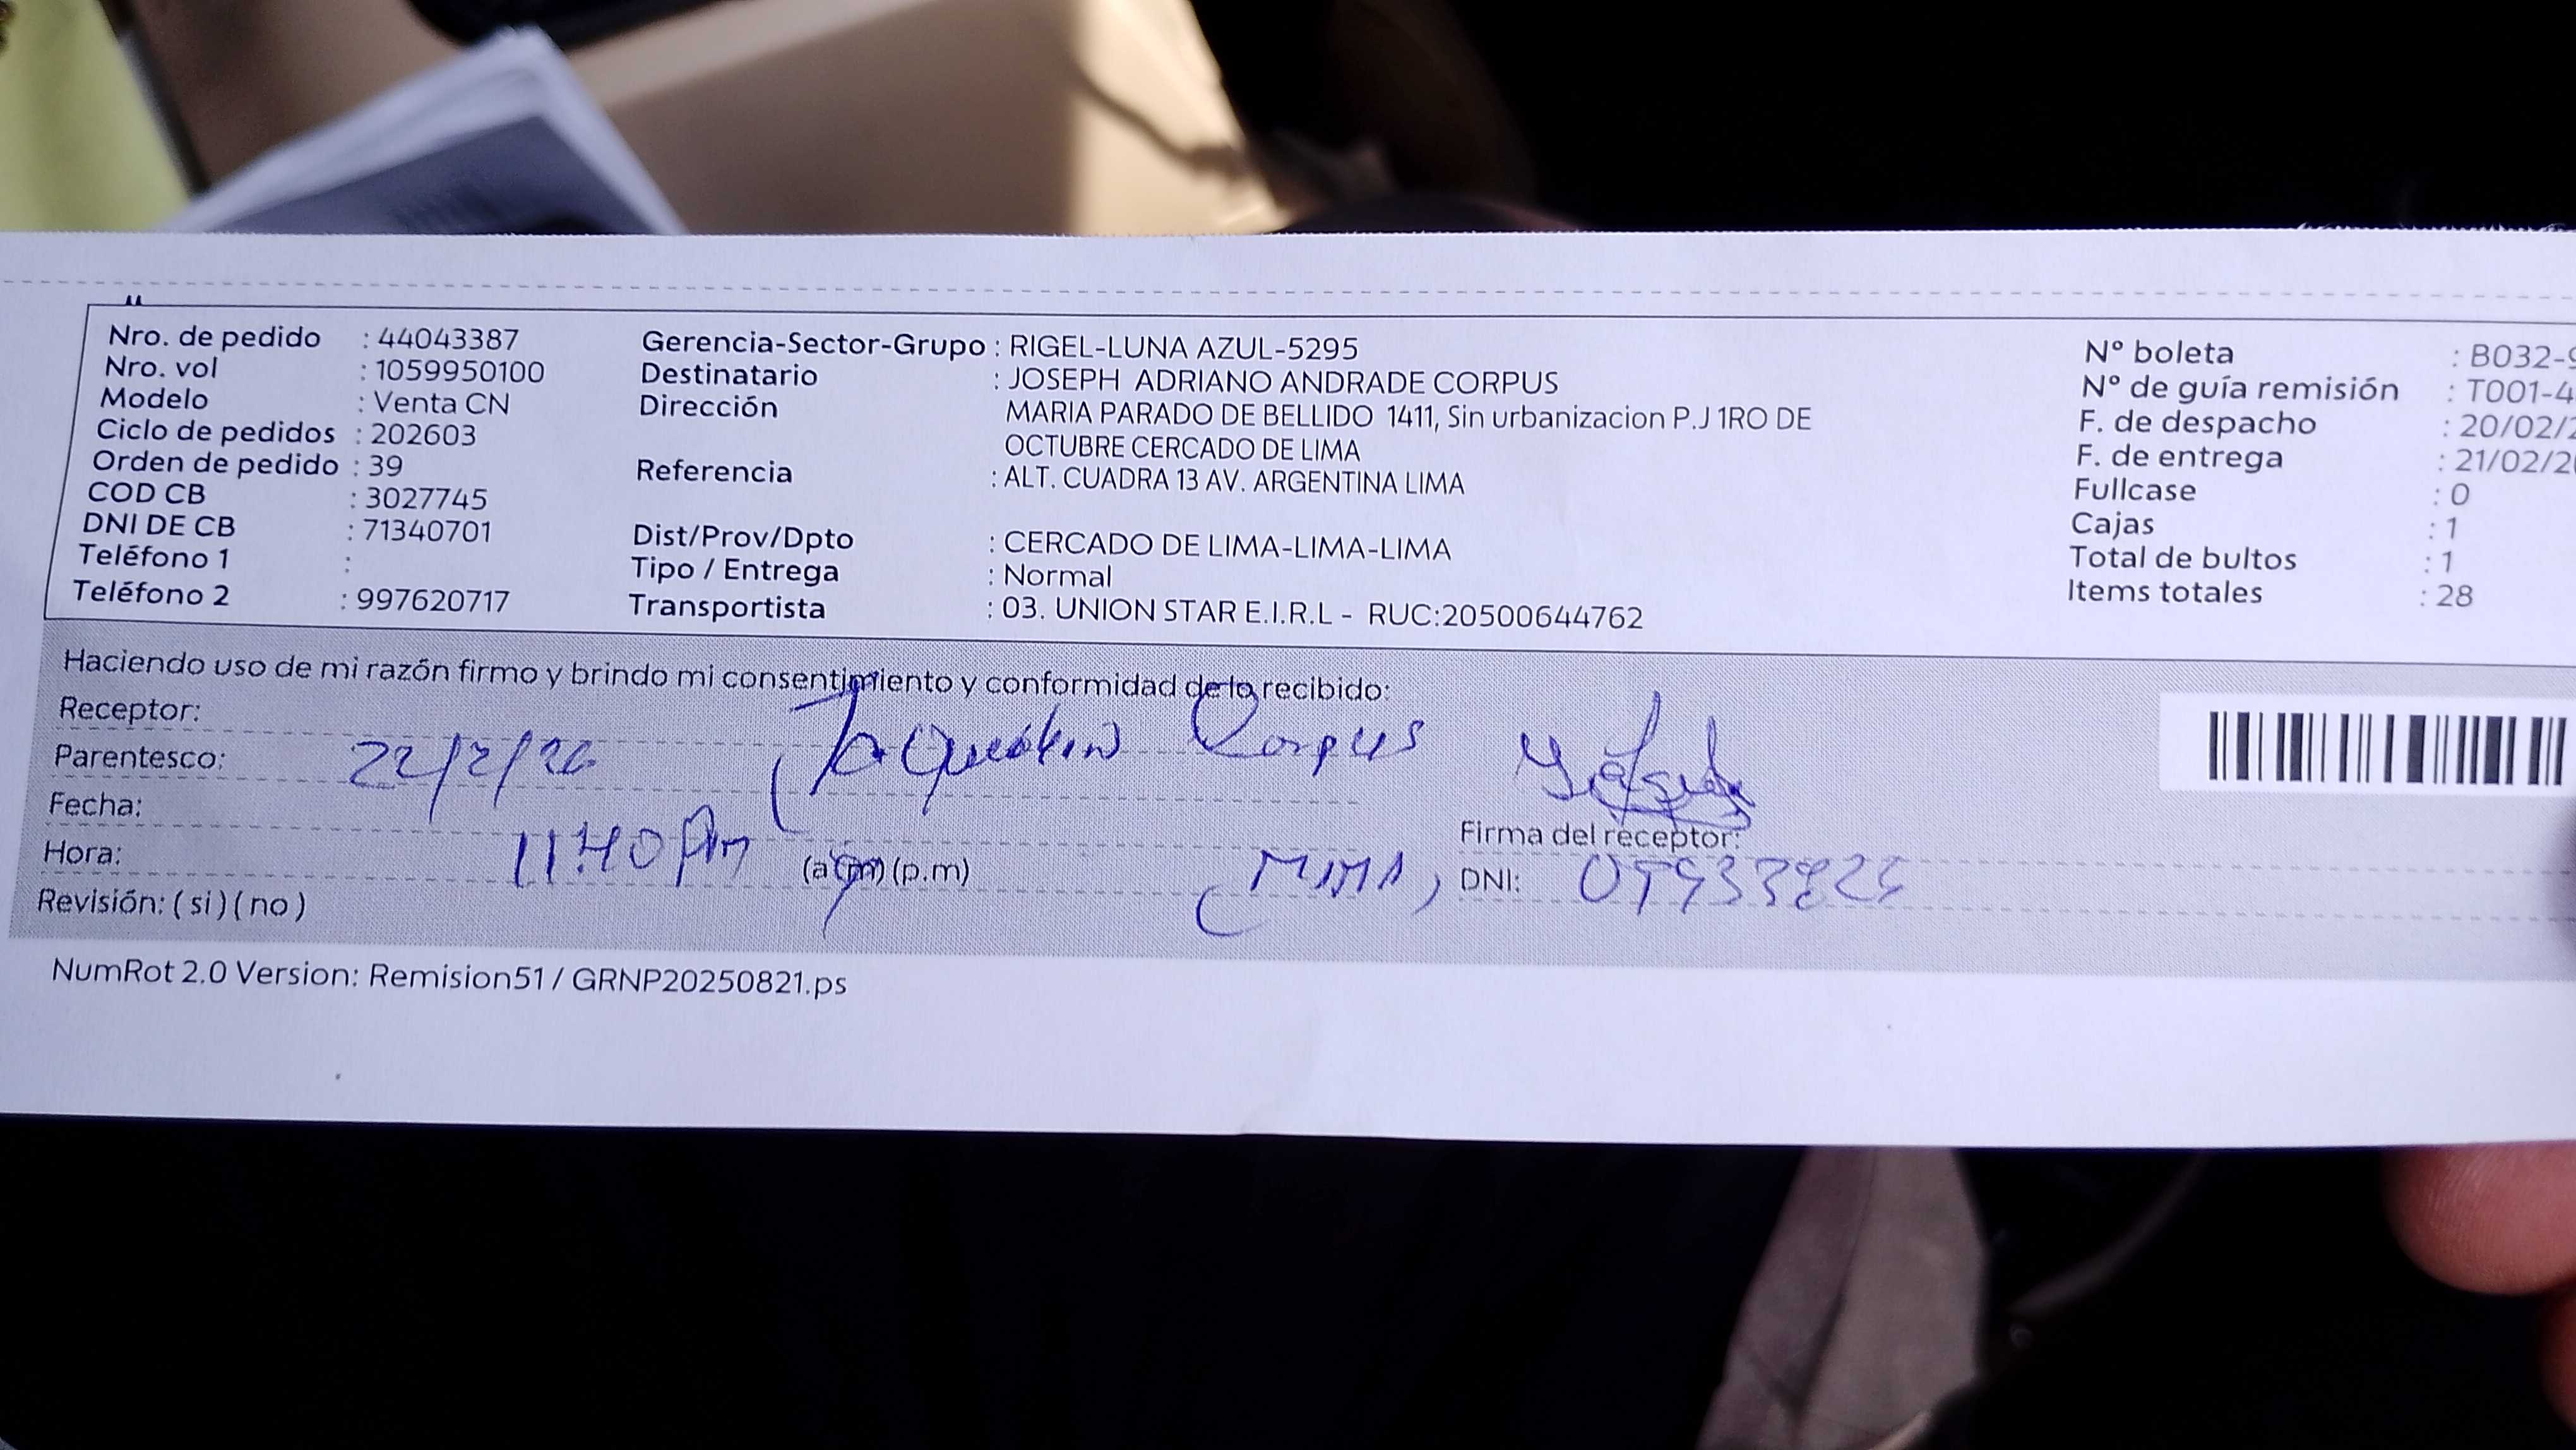 Nro. de pedido : 44043387
Nro. vol : 1059950100
Modelo : Venta CN
Ciclo de pedidos : 202603
Orden de pedido : 39
COD CB : 3027745
DNI DE CB : 71340701
Teléfono 1 :
Teléfono 2 : 997620717
Gerencia-Sector-Grupo : RIGEL-LUNA AZUL-5295
Destinatario : JOSEPH ADRIANO ANDRADE CORPUS
Dirección MARIA PARADO DE BELLIDO 1411, Sin urbanizacion P.J 1RO DE
OCTUBRE CERCADO DE LIMA
Referencia : ALT. CUADRA 13 AV. ARGENTINA LIMA
Dist/Prov/Dpto : CERCADO DE LIMA-LIMA-LIMA
Tipo / Entrega : Normal
Transportista : 03. UNION STAR E.I.R.L - RUC:20500644762
N° boleta : B032-
N° de guía remisión : T001-4
F. de despacho : 20/02/2
F. de entrega : 21/02/2
Fullcase : 0
Cajas : 1
Total de bultos : 1
Items totales : 28
Haciendo uso de mi razón firmo y brindo mi consentimiento y conformidad de lo recibido:
Receptor: Corpus
Parentesco: 22/2/26
Fecha:
Hora: 11:40 Am (a.m) (p.m)
Revisión: ( si ) ( no )
Firma del receptor:
(MIMA) DNI:
NumRot 2.0 Version: Remision51 / GRNP20250821.ps